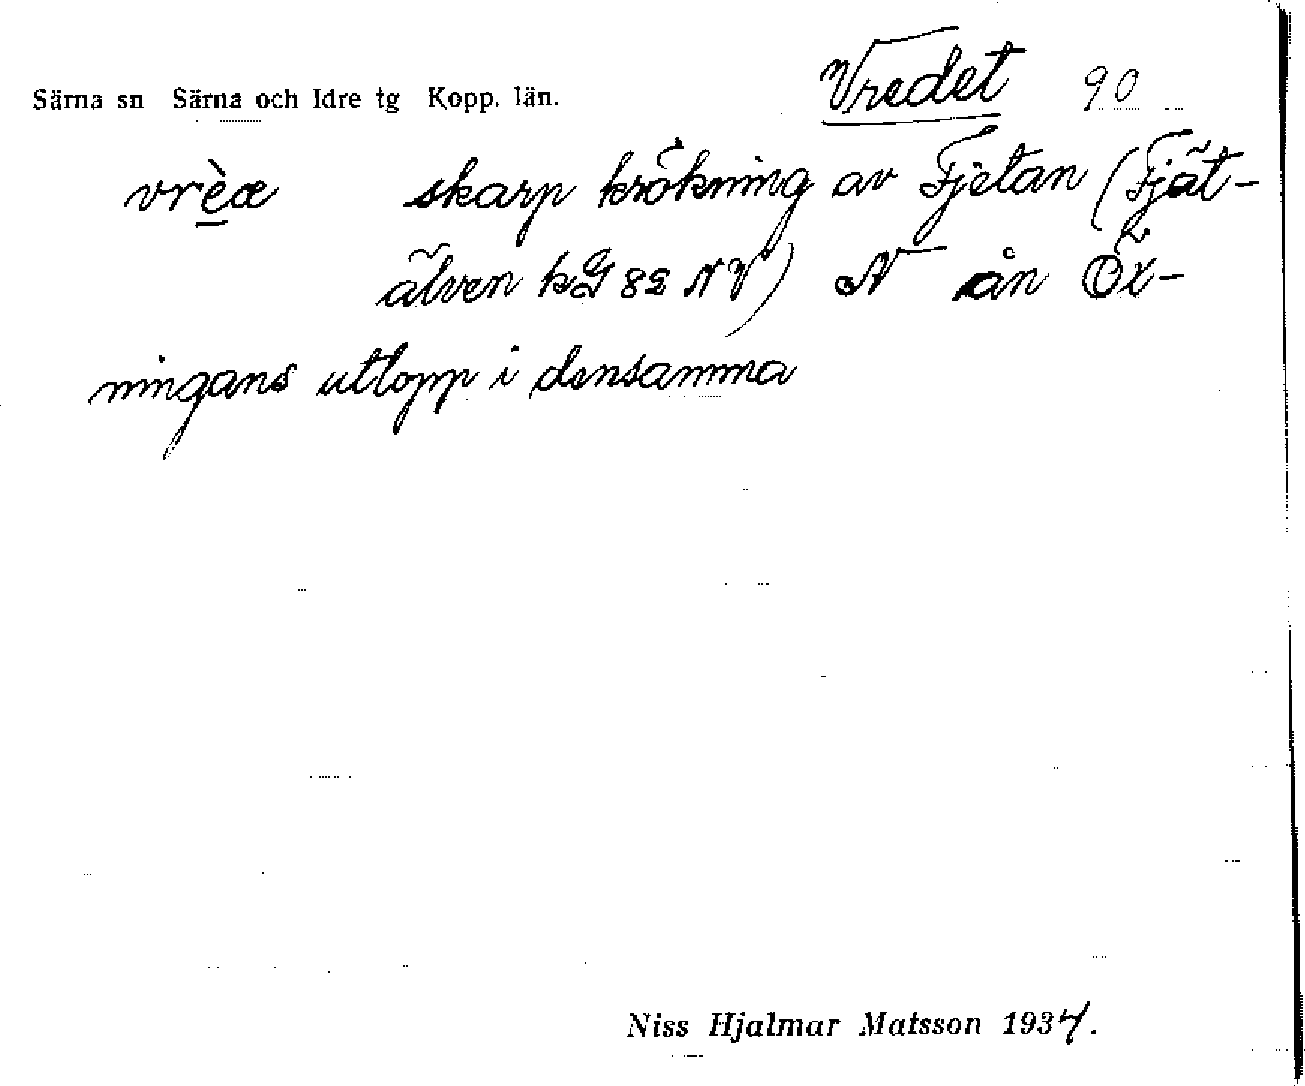 Vredet 90
Särna sn Särna och Idre tg Kopp. län.
vrèæ skarp krökning av Fjätan (Fjät-
älven kG 82 NV) N ån Öx-
ningans utlopp i densamma
Niss Hjalmar Matsson 1934.